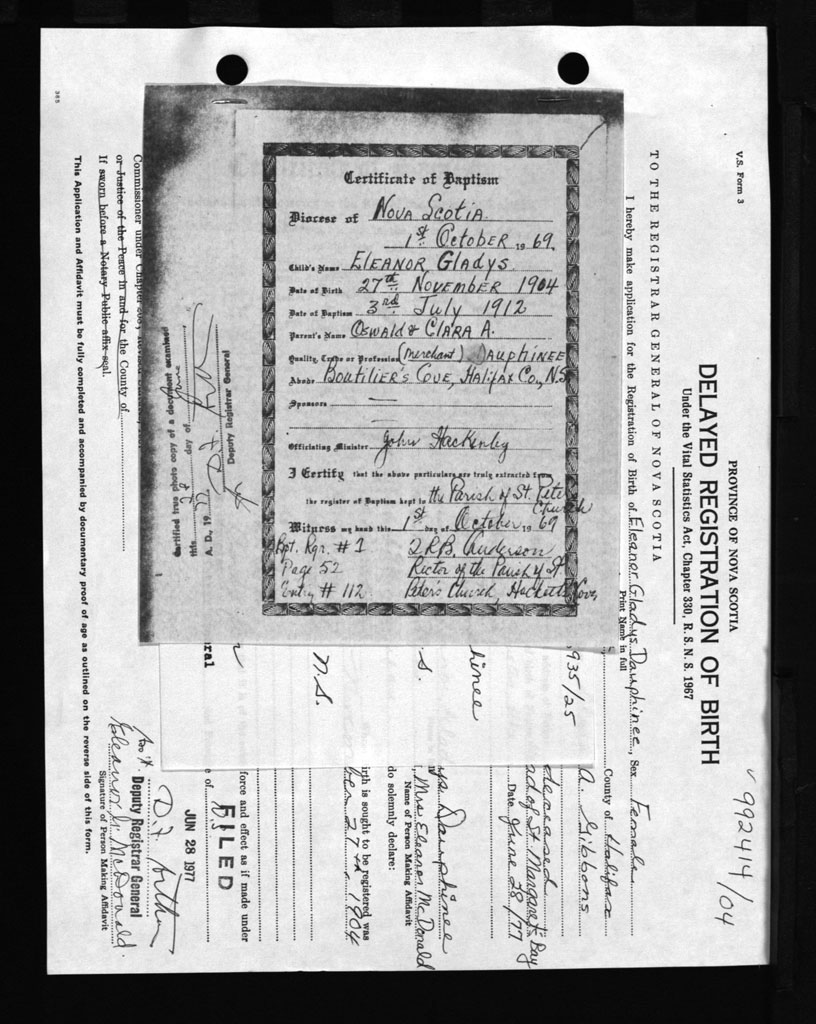 Certificate of Baptism
Diocese of NOVA SCOTIA
1st October 1969.
Child's Name ELEANOR GLADYS
Date of Birth 27th NOVEMBER 1904
Date of Baptism 3rd July 1912
Parent's Name OSWALD & CLARA A.
Quality, Trade or Profession (Merchant) DAUPHINEE
Abode BOUTILIER'S COVE, HALIFAX Co., N.S.
Sponsors
Officiating Minister John Hackenley
I Certify that the above particulars are truly extracted from
the register of Baptism kept in the Parish of St. Peter's
Church
Witness my hand this 1st day of October, 1969
Bpt. Rgr. # 1
Page 52
Entry # 112
Anderson
Rector of the Parish of St.
Peter's Church, Hacketts Cove,
V.S. Form 3
992414/04
PROVINCE OF NOVA SCOTIA
DELAYED REGISTRATION OF BIRTH
Under the Vital Statistics Act, Chapter 330, R. S. N. S. 1967
TO THE REGISTRAR GENERAL OF NOVA SCOTIA
I hereby make application for the Registration of Birth of Eleanor Gladys Dauphinee, Sex Female
Print Name in full
County of Halifax
A. Gibbons
935/25
deceased
ad of St. Margaret's Bay
Date June 28/77
hinee
s.
ys Dauphinee
Mrs. Eleanor McDonald
Name of Person Making Affidavit
do solemnly declare:
irth is sought to be registered was
ber 27th, 1904
N.S.
force and effect as if made under
FILED
N.S.
JUN 28 1977
eral
Deputy Registrar General
Eleanor G. McDonald
Signature of Person Making Affidavit
Certified true photo copy of a document
day of
A. D. 19
Deputy Registrar General
Commissioner under Chapter
or Justice of the Peace in and for the County of
If sworn before a Notary Public affix seal.
This Application and Affidavit must be fully completed and accompanied by documentary proof of age as outlined on the reverse side of this form.